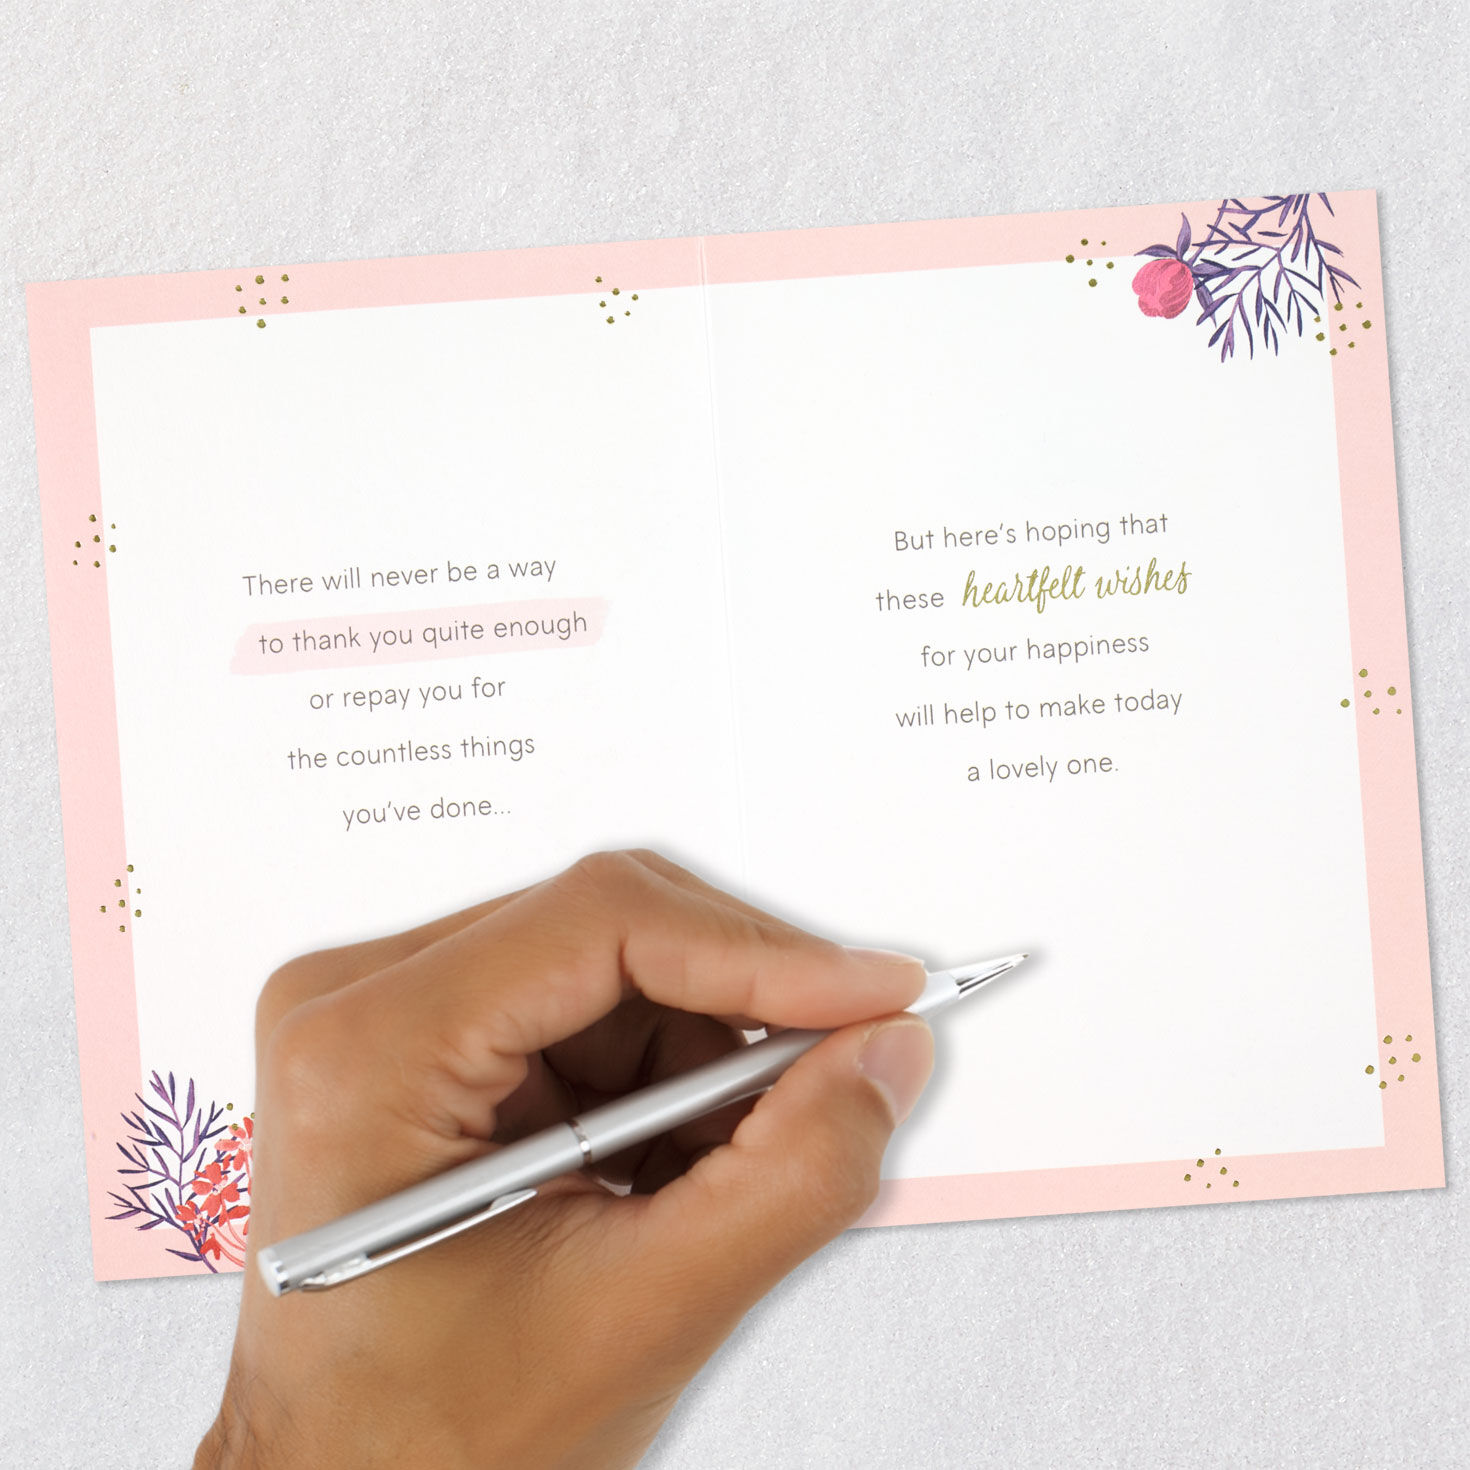 There will never be a way
to thank you quite enough
or repay you for
the countless things
you've done...
But here's hoping that
these heartfelt wishes
for your happiness
will help to make today
a lovely one.